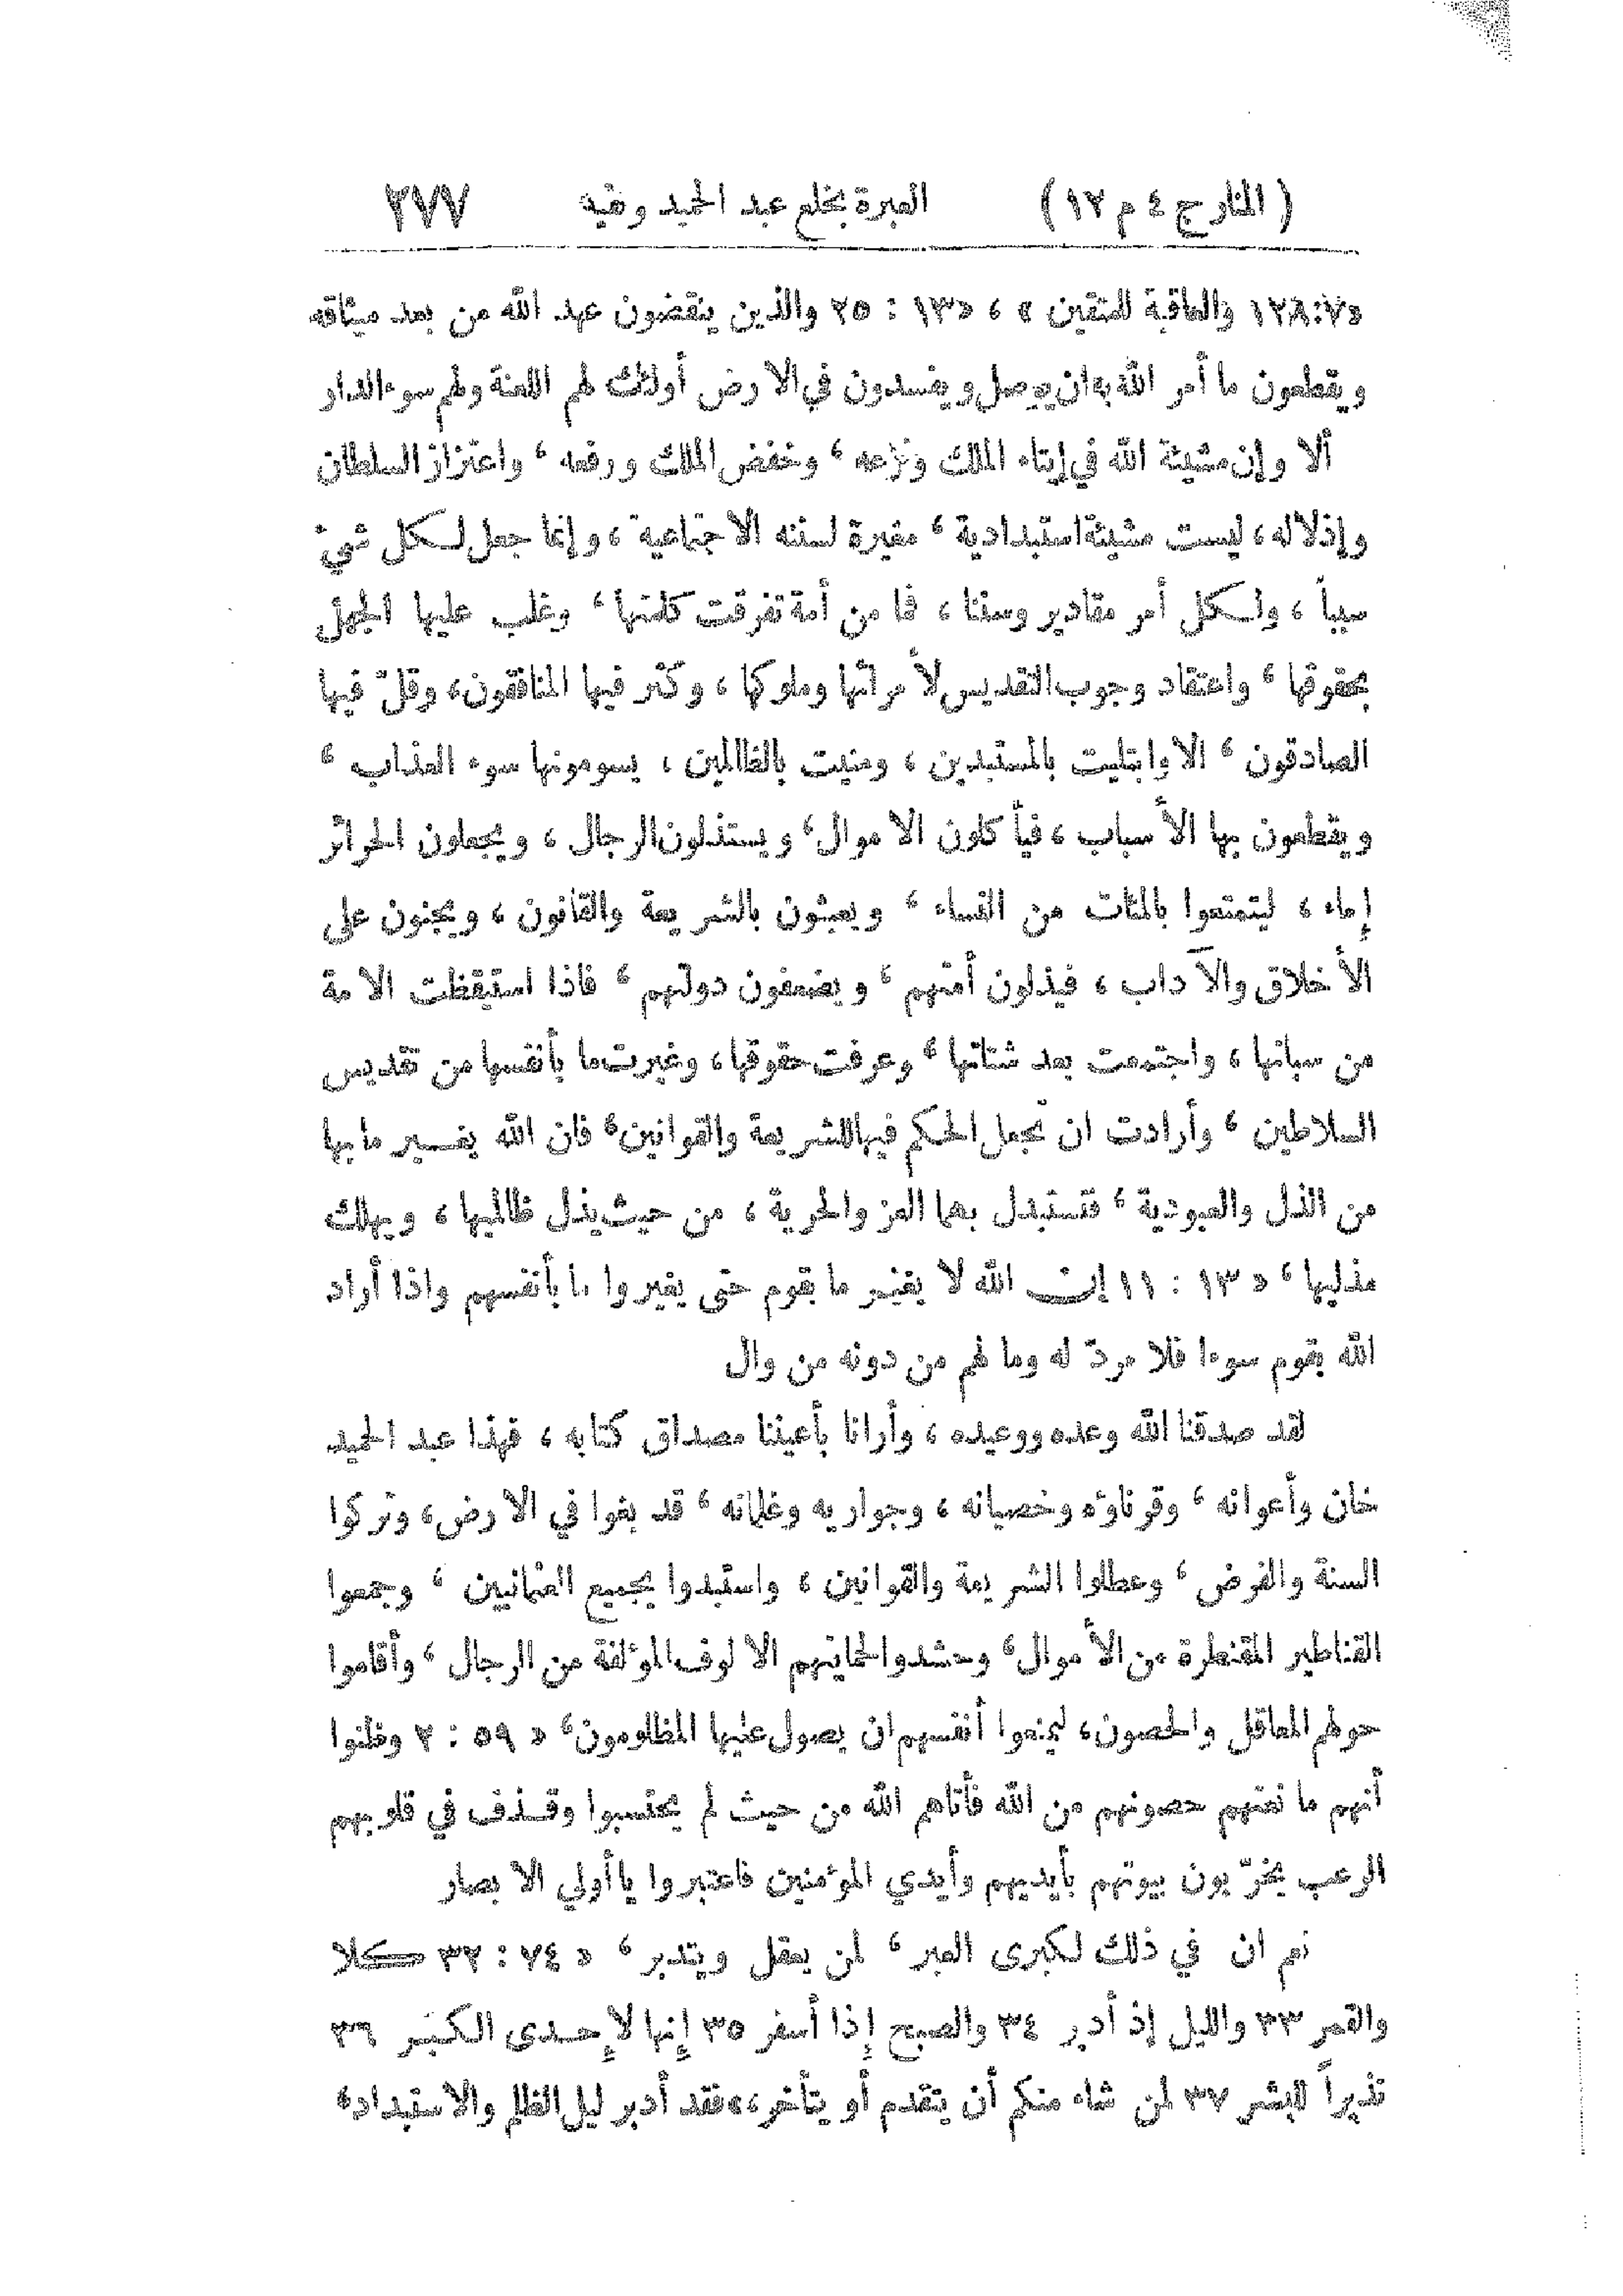 ( المنار ج ٤ م ١٢ ) العبرة بخلع عبد الحميد وفيه ٢٧٧
«١٢٨:٧ والعاقبة للمتقين » ، «١٣ : ٢٥ والذين ينقضون عهد الله من بعد ميثاقه
ويقطعون ما أمر الله به ان يوصل ويفسدون في الارض أولئك لهم اللعنة ولهم سوء الدار
ألا وإن مشيئة الله في إيتاء الملك ونزعه ، وخفض الملك ورفعه ، واعتزاز السلطان
وإذلاله ، ليست مشيئة استبدادية ، مغيرة لسننه الاجتماعية ، وإنما جعل لكل شيء
سبباً ، ولكل أمر مقادير وسننا ، فما من أمة تفرقت كلمتها ، وغلب عليها الجهل
بحقوقها ، واعتقاد وجوب التقديس لأمرائها وملوكها ، وكثر فيها المنافقون ، وقلّ فيها
الصادقون ، الا وابتليت بالمستبدين ، ومنيت بالظالمين ، يسومونها سوء العذاب ،
ويقطعون بها الأسباب ، فيأكلون الاموال ، ويستذلون الرجال ، ويجعلون الحرائر
إماء ، ليتمتعوا بالمئات من النساء ، ويعبثون بالشريعة والقانون ، ويجنون على
الأخلاق والآداب ، فيذلون أمتهم ، ويضعفون دولتهم ، فاذا استيقظت الامة
من سباتها ، واجتمعت بعد شتاتها ، وعرفت حقوقها ، وغيرت ما بأنفسها من تقديس
السلاطين ، وأرادت ان تجعل الحكم فيها للشريعة والقوانين ، فان الله يغير ما بها
من الذل والعبودية ، فتستبدل بهما العز والحرية ، من حيث يذل ظالميها ، ويهلك
مذليها ، « ١٣ : ١١ إن الله لا يغير ما بقوم حتى يغيروا ما بأنفسهم واذا أراد
الله بقوم سوءا فلا مردّ له وما لهم من دونه من وال
لقد صدقنا الله وعده ووعيده ، وأرانا بأعيننا مصداق كتابه ، فهذا عبد الحميد
خان وأعوانه ، وقرناؤه وخصيانه ، وجواريه وغلمانه ، قد بغوا في الارض ، وتركوا
السنة والفرض ، وعطلوا الشريعة والقوانين ، واستبدوا بجميع العثمانيين ، وجمعوا
القناطير المقنطرة من الأموال ، وحشدوا لحمايتهم الالوف المؤلفة من الرجال ، وأقاموا
حولهم المعاقل والحصون ، ليمنعوا أنفسهم ان يصول عليها المظلومون ، « ٥٩ : ٢ وظنوا
أنهم ما نعتهم حصونهم من الله فأتاهم الله من حيث لم يحتسبوا وقذف في قلوبهم
الرعب يخرّبون بيوتهم بأيديهم وأيدي المؤمنين فاعتبروا يا أولي الابصار
نعم ان في ذلك لكبرى العبر ، لمن يعقل ويتدبر ، « ٧٤ : ٣٢ كلا
والقمر ٣٣ والليل إذ أدبر ٣٤ والصبح إذا أسفر ٣٥ إنها لإحدى الكبر ٣٦
نذيراً للبشر ٣٧ لمن شاء منكم أن يتقدم أو يتأخر ، » فقد أدبر ليل الظلم والاستبداد ،